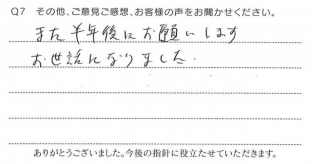 Q7 その他、ご意見ご感想、お客様の声をお聞かせください。
また半年後にお願いします
お世話になりました。
ありがとうございました。今後の指針に役立たせていただきます。